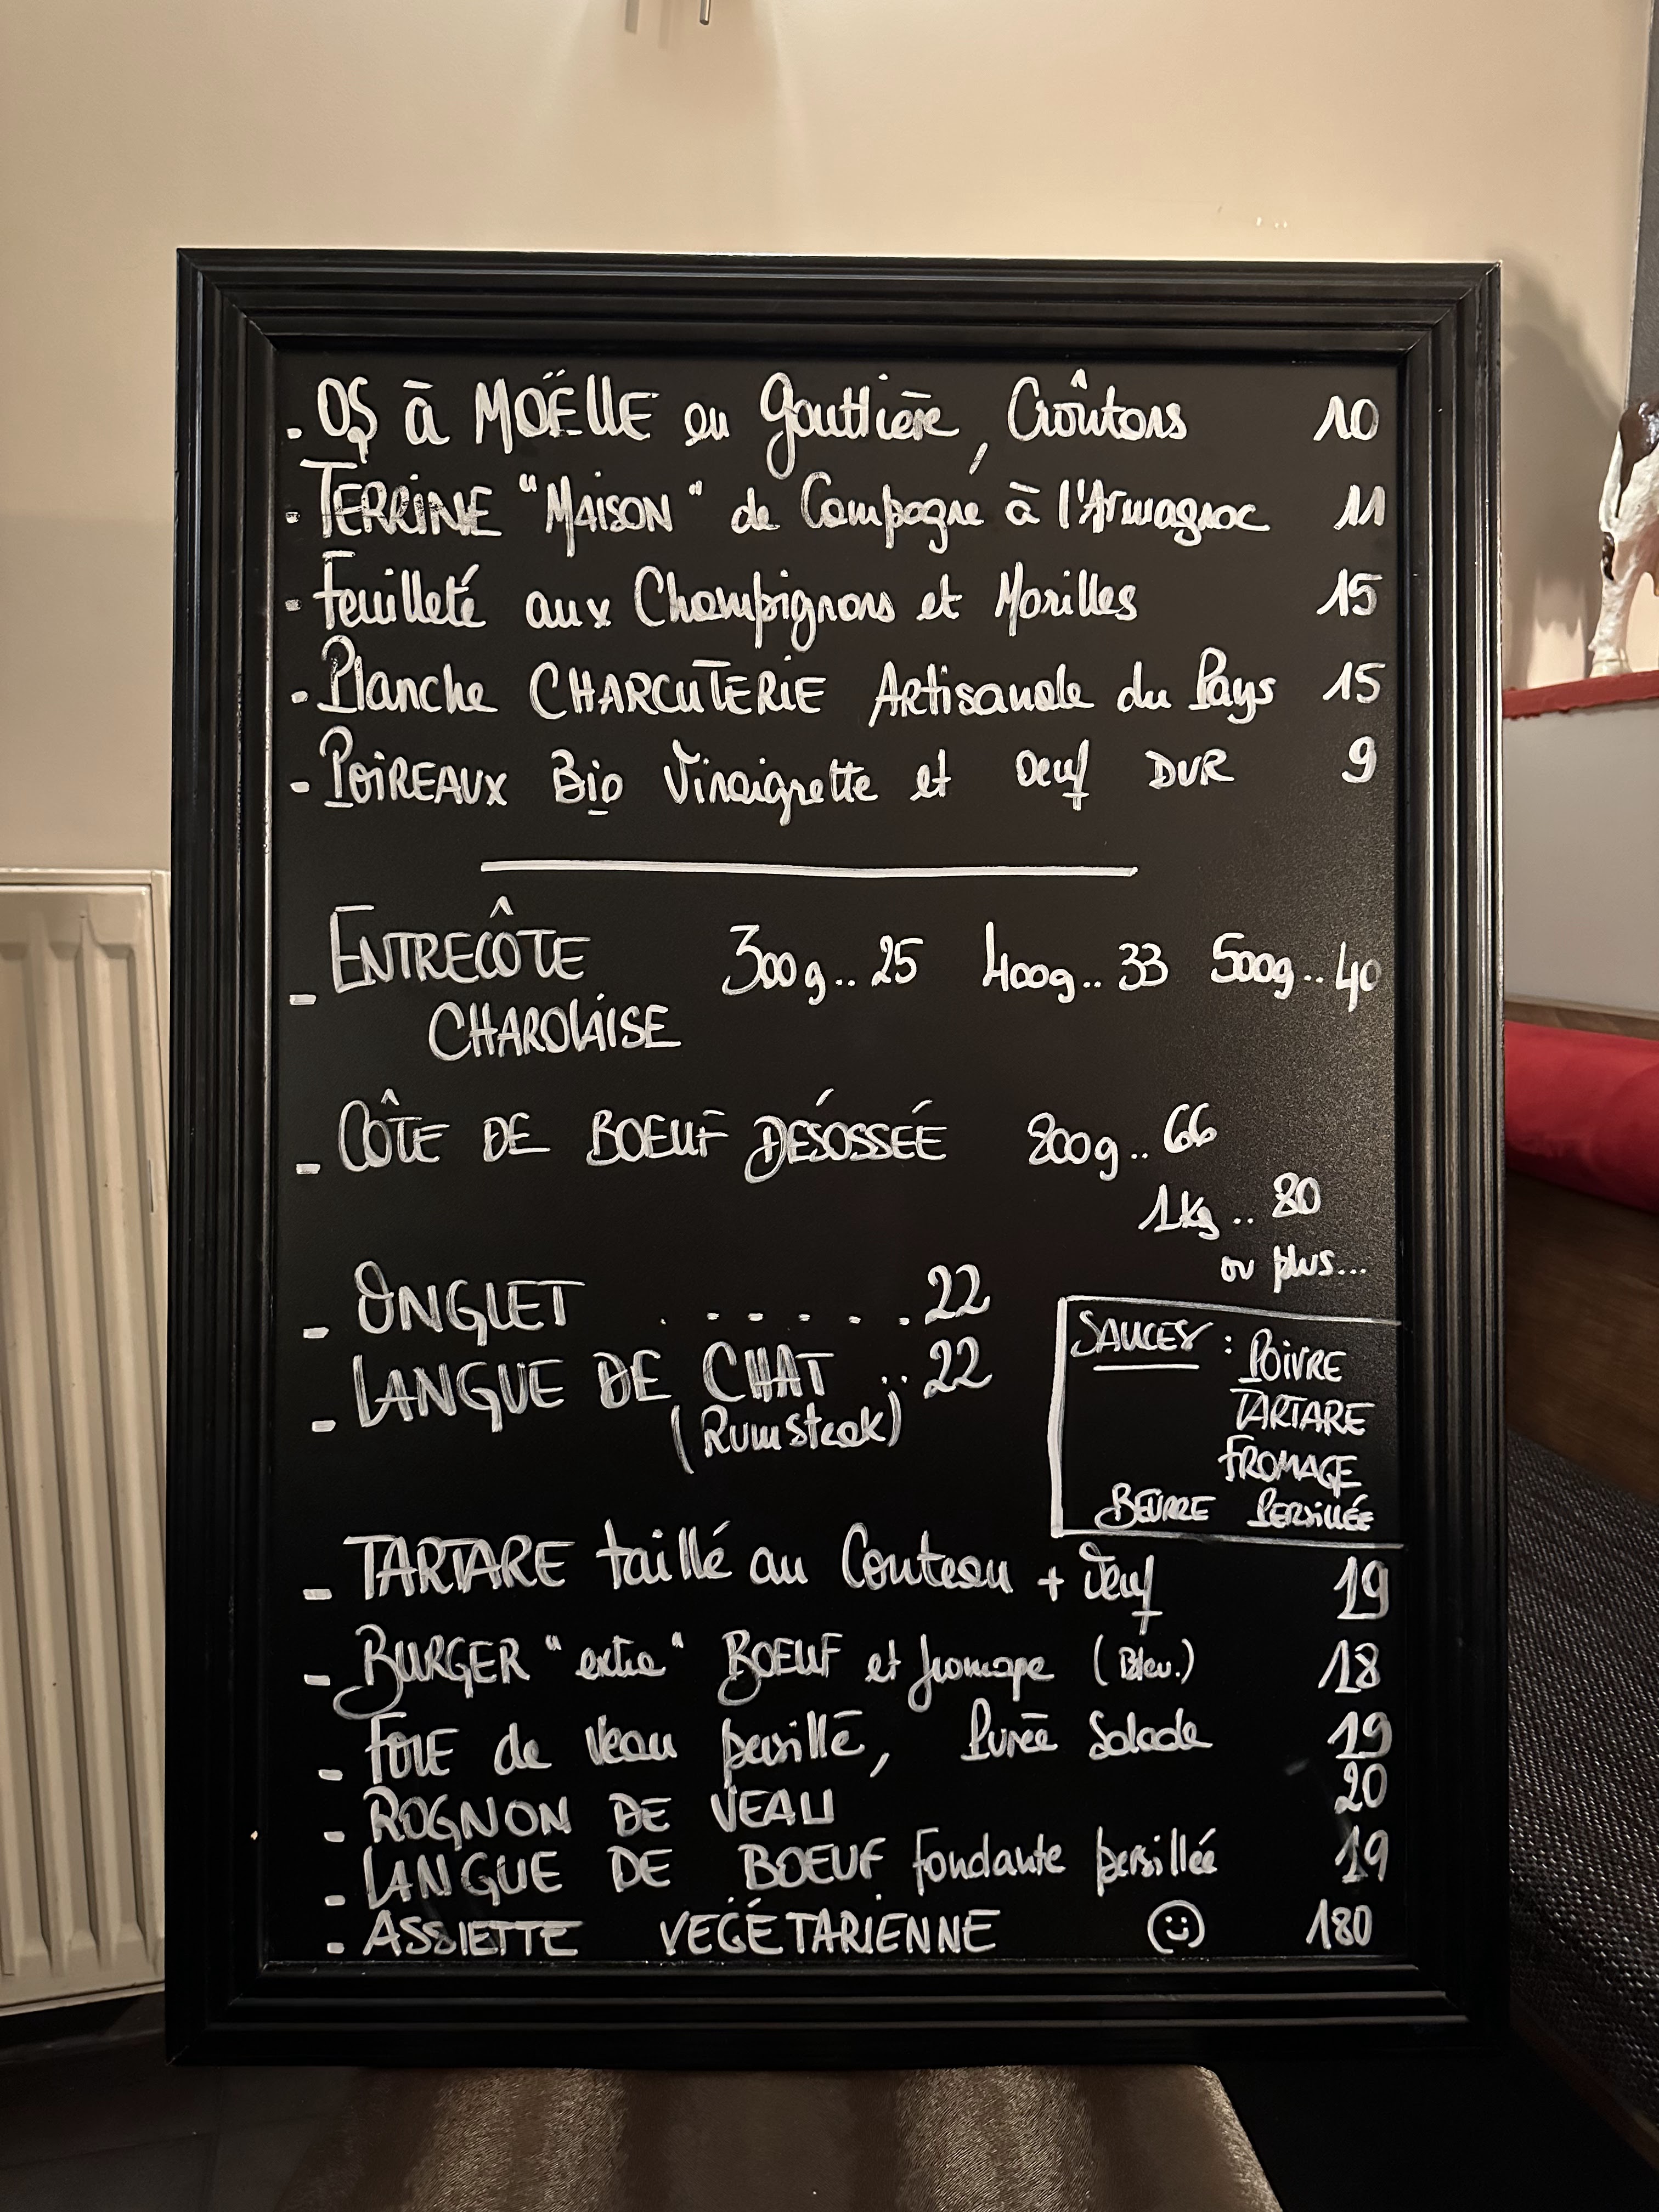 . OS à MOËLLE en gouttière, Croûtons 10
. TERRINE "MAISON" de Campagne à l'Armagnac 11
. Feuilleté aux Champignons et Morilles 15
. Planche CHARCUTERIE Artisanale du Pays 15
- POIREAUX Bio Vinaigrette et Oeuf DUR 9
- ENTRECÔTE 300g.. 25 400g.. 33 500g.. 40
CHAROLAISE
- CÔTE DE BOEUF DÉSOSSÉE 800g.. 66
1kg .. 80
ou plus...
- ONGLET . . . . . . 22
- LANGUE DE CHAT .. 22
(Rumsteak)
SAUCES : POIVRE
TARTARE
FROMAGE
BEURRE PERSILLÉE
- TARTARE taillé au Couteau + Oeuf 19
- BURGER "extra" BOEUF et fromage (Bleu.) 18
- FOIE de Veau persillé, Purée Salade 19
- ROGNON DE VEAU 20
- LANGUE DE BOEUF fondante persillée 19
- ASSIETTE VÉGÉTARIENNE ☺ 180